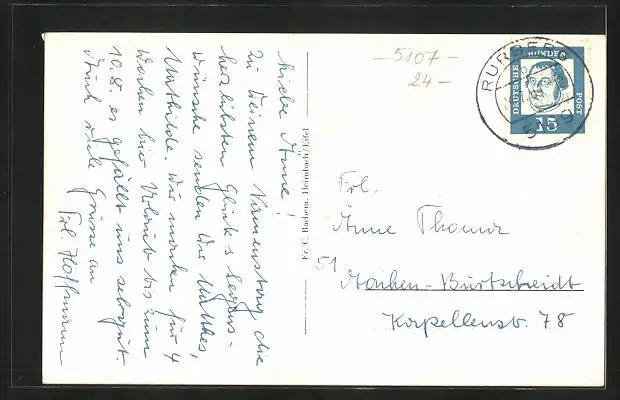 Liebe Änne!
Zu Deinem Namenstag die
herzlichsten Glück- & Segens-
wünsche senden Dir Matthes,
Mathilde. Wir machen für 4
Wochen hier Urlaub bis zum
10.8. es gefällt uns sehr gut.
Auch viele Grüsse an
Frl. Hoffmann
Fr. C. Bachem, Heimbach/Eifel
5107
24
RURBERG
DEUTSCHE BUNDES POST
15
Frl.
Änne Thoma
51 Aachen-Burtscheidt
Kapellenstr. 78